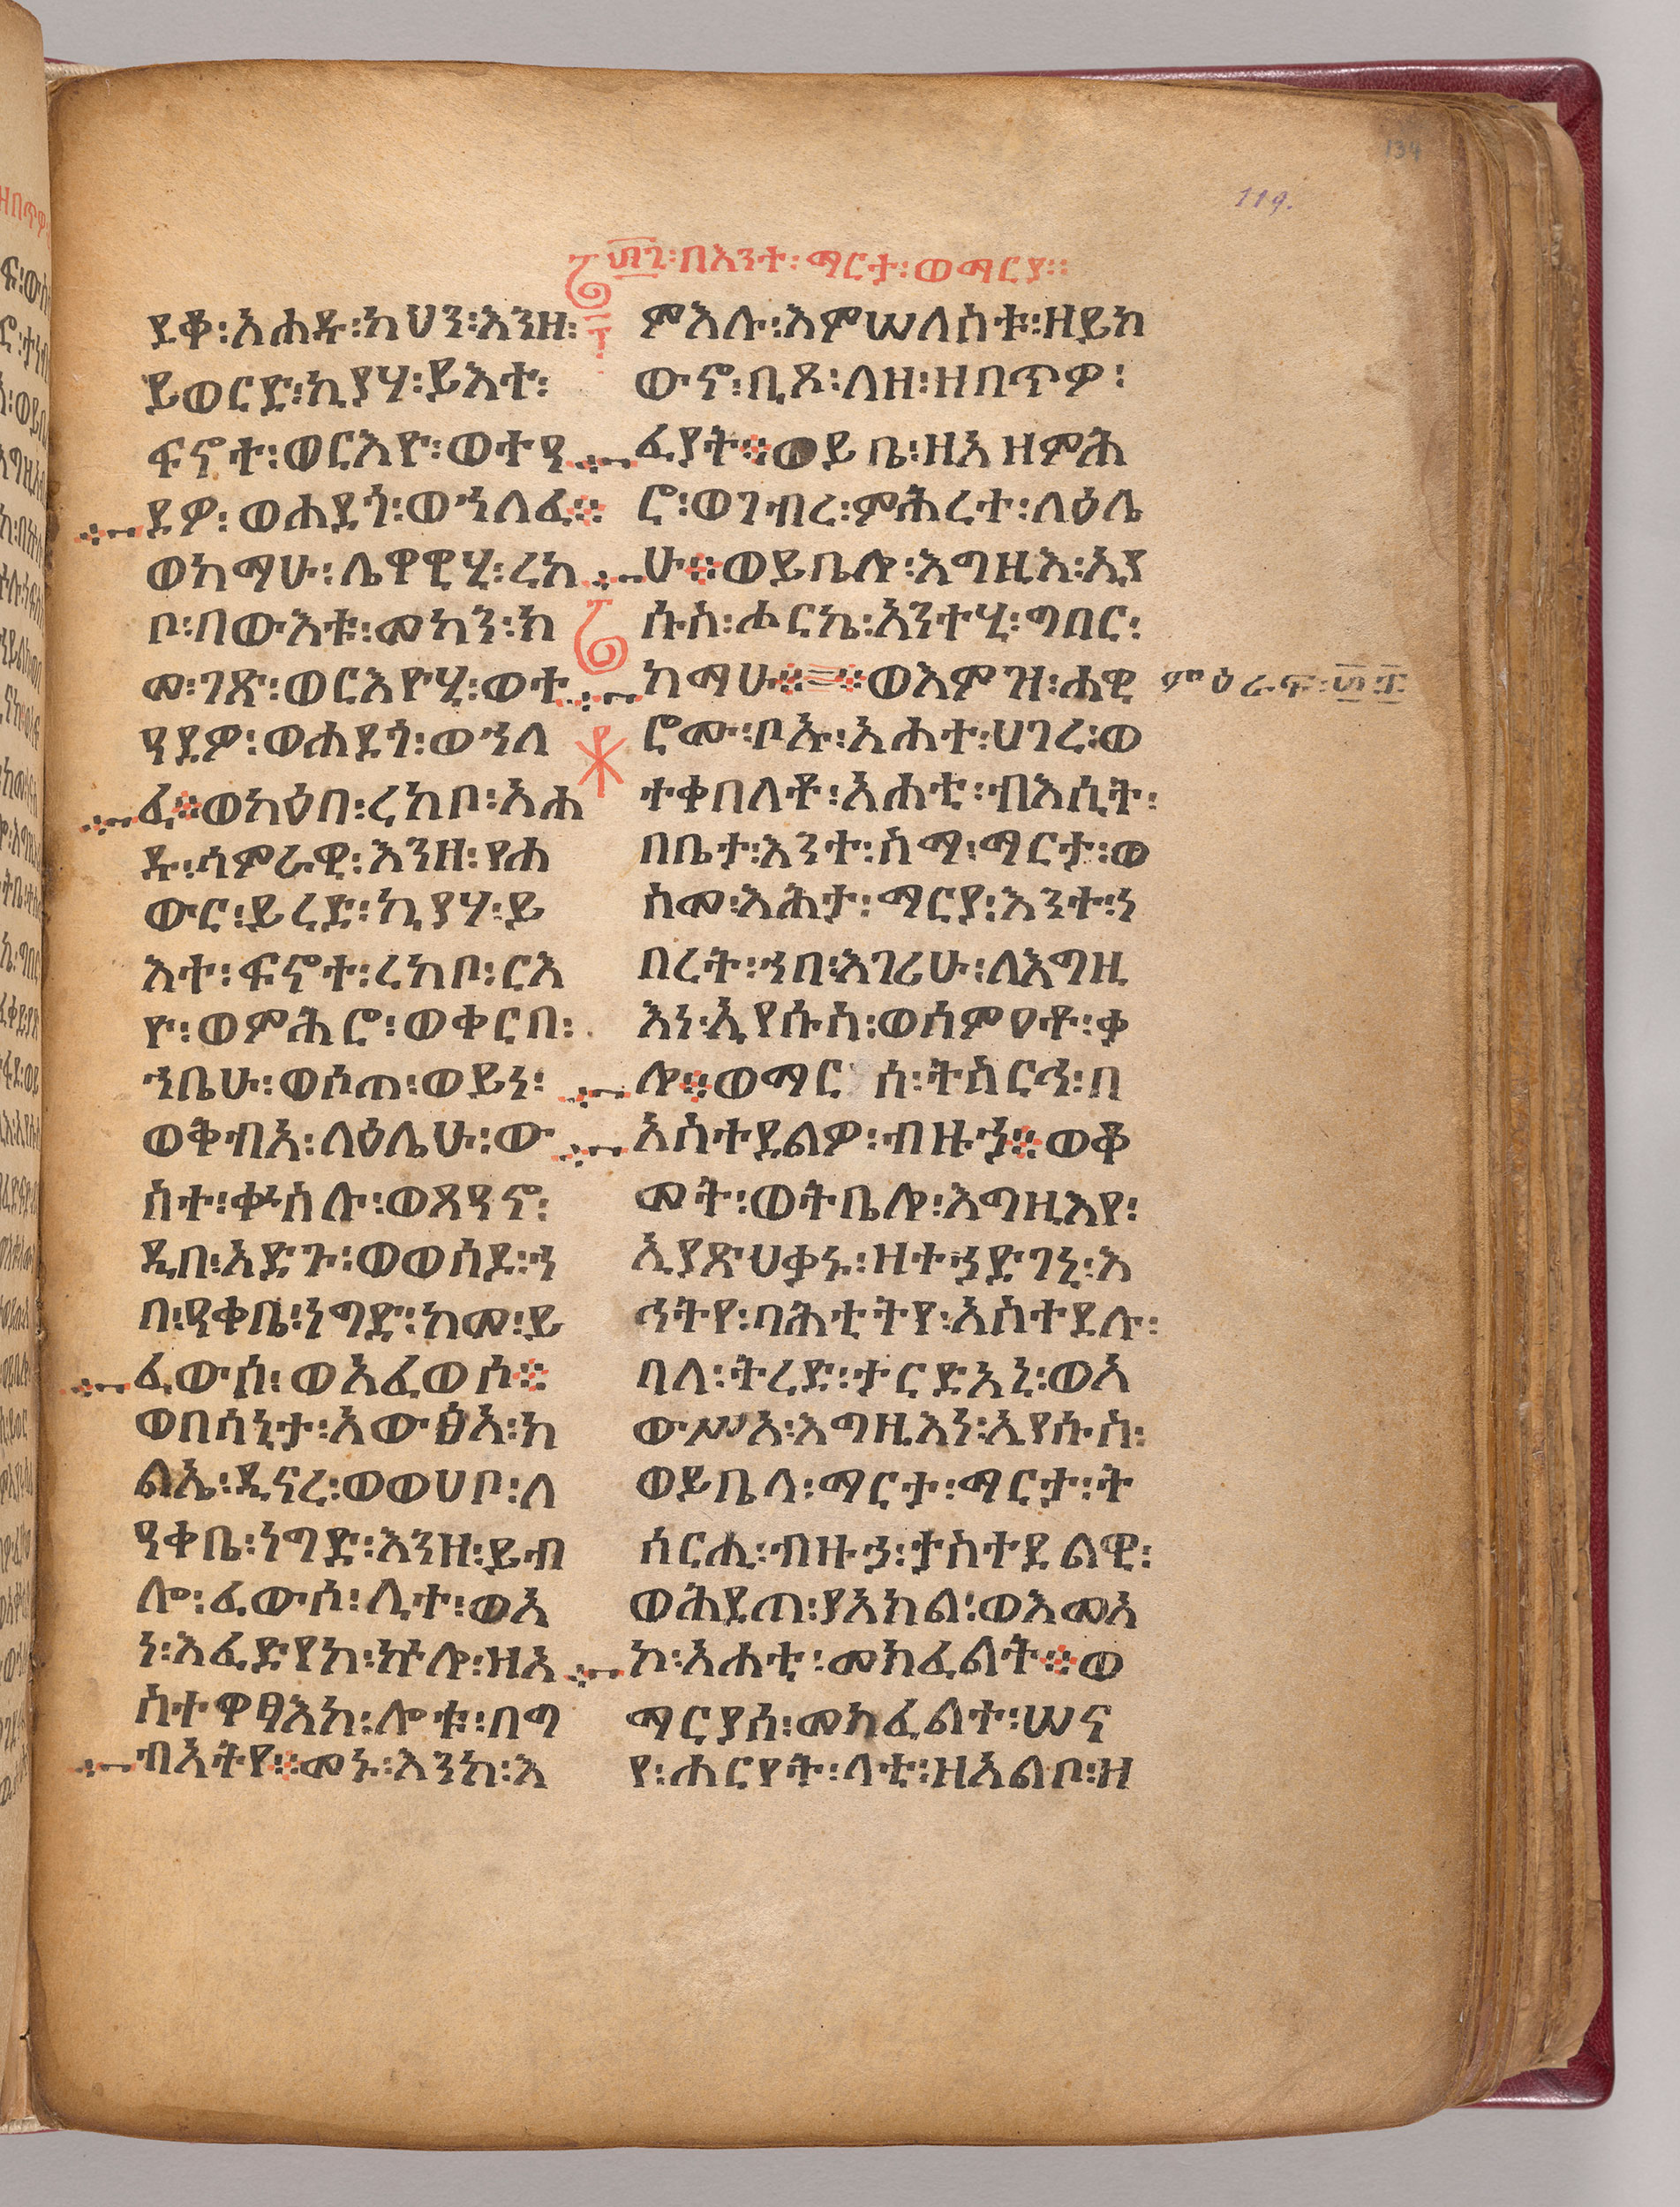 134
119.
፴፯፡በእንተ፡ማርታ፡ወማርያ፡፡
ደቆ፡አሐዱ፡ካህን፡እንዘ፡
ይወርድ፡ኢያሪ፡ይእተ፡
ፍኖተ፡ወርእዮ፡ወተዓ
ደዎ፡ወሐደጎ፡ወኀለፈ፨
ወከማሁ፡ሌዋዊሂ፡ረከ
ቦ፡በውእቱ፡መካን፡ከ
መ፡ገጽ፡ወርእዮሂ፡ወተ
ዓደዎ፡ወሐደጎ፡ወኀለ
ፈ፨ወካዕበ፡ረከቦ፡አሐ
ዱ፡ሳምራዊ፡እንዘ፡የሐ
ውር፡ይረድ፡ኢያሪ፡ይ
እተ፡ፍኖተ፡ረከቦ፡ርእ
ዮ፡ወምሕሮ፡ወቀርበ፡
ኀቤሁ፡ወሶጠ፡ወይነ፡
ወቅብአ፡ላዕሌሁ፡ው
ስተ፡ቍስሉ፡ወጸዓኖ፡
ዲበ፡አድጉ፡ወወሰዶ፡ኀ
በ፡ዓቃቤ፡ነግድ፡ከመ፡ይ
ፈውሶ፡ወአፈወሶ፨
ወበሳኒታ፡አውፅአ፡ክ
ልኤ፡ዲናረ፡ወወሀቦ፡ለ
ዓቃቤ፡ነግድ፡እንዘ፡ይብ
ሎ፡ፈውሶ፡ሊተ፡ወአ
ነ፡እፈድየከ፡ኵሎ፡ዘአ
ስተዋፃእከ፡ሎቱ፡በግ
ብአትየ፨መኑ፡እንከ፡እ
ምእሉ፡እምሠለስቱ፡ዘይከ
ውኖ፡ቢጾ፡ለዘ፡ዘበጥዎ፡
ፈያት፨ወይቤ፡ዘአዘምሕ
ሮ፡ወገብረ፡ምሕረተ፡ላዕሌ
ሁ፨ወይቤሎ፡እግዚእ፡ኢየ
ሱስ፡ሖርኬ፡አንተሂ፡ግበር፡
ከማሁ፨፨ወእምዝ፡ሐዊ
ምዕራፍ፡፴፰
ሮሙ፡ቦኡ፡አሐተ፡ሀገረ፡ወ
ተቀበለቶ፡አሐቲ፡ብእሲት፡
በቤታ፡እንተ፡ስማ፡ማርታ፡ወ
ስመ፡እሕታ፡ማርያ፡እንተ፡ነ
በረት፡ኀበ፡እገሪሁ፡ለእግዚ
እነ፡ኢየሱስ፡ወሰምዐቶ፡ቃ
ሎ፨ወማር ሰ፡ትስርሕ፡በ
አስተደልዎ፡ብዙኅ፨ወቆ
መት፡ወትቤሎ፡እግዚእየ፡
ኢያጽህቃኑ፡ዘተኀድገኒ፡እ
ኅትየ፡ባሕቲትየ፡አስተደሉ፡
በላ፡ትረድ፡ታርድእኒ፡ወአ
ውሥአ፡እግዚእነ፡ኢየሱስ፡
ወይቤላ፡ማርታ፡ማርታ፡ት
ሰርሒ፡ብዙኅ፡ታስተደልዊ፡
ወሕዳጠ፡ያአክል፡ወእመአ
ኮ፡አሐቲ፡መክፈልት፨ወ
ማርያሰ፡መክፈልተ፡ሠና
የ፡ሐርየት፡ላቲ፡ዘአልቦ፡ዘ